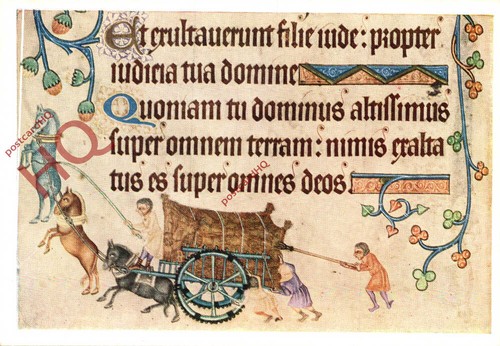 Et exultauerunt filie iude: propter
iudicia tua domine
Quoniam tu dominus altissimus
super omnem terram: nimis exalta
tus es super omnes deos.
postcardHQ
HQ
postcardHQ